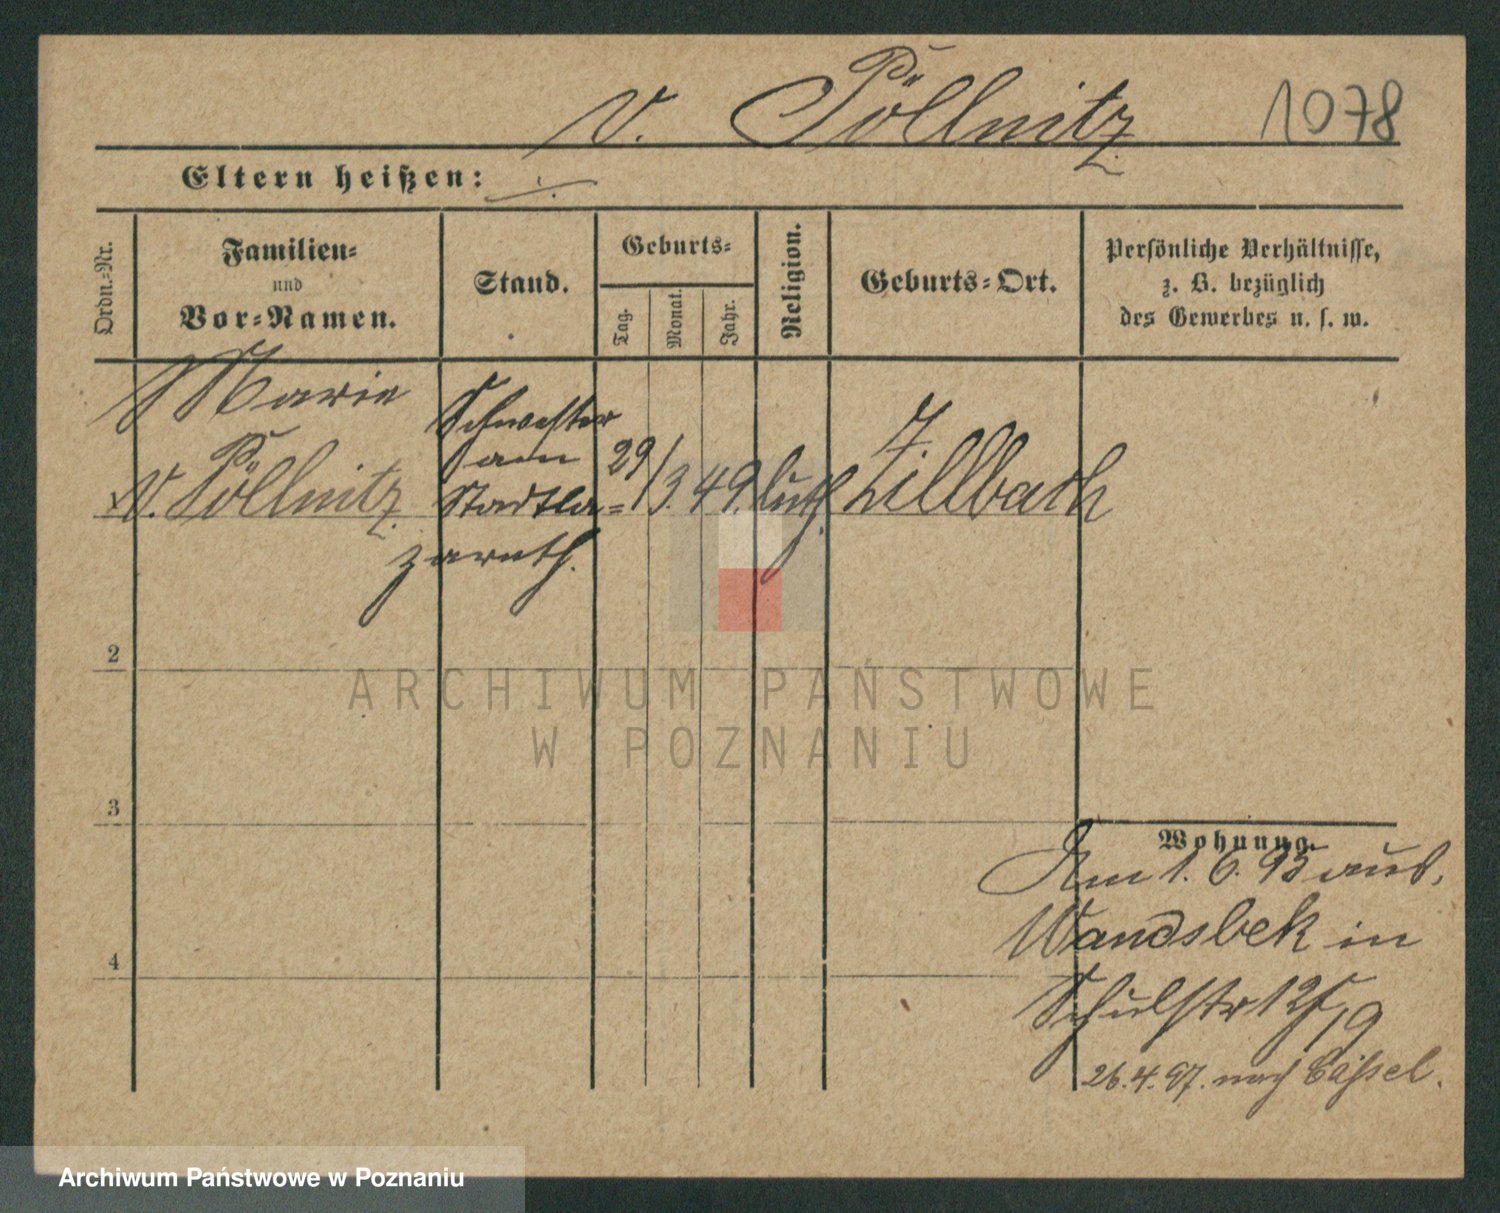 v. Pöllnitz 1078
Eltern heißen: ./.
Ordn.-Nr.
Familien-
und
Vor-Namen.
Stand.
Geburts-
Tag.
Monat.
Jahr.
Religion.
Geburts-Ort.
Persönliche Verhältnisse,
z. B. bezüglich
des Gewerbes u. s. w.
Marie
v. Pöllnitz
Schwester
am
Stadtla=
zareth.
29/3. 49.
luth.
Zillbach
2
3
4
ARCHIWUM PAŃSTWOWE
W POZNANIU
Wohnung.
Am 1. 6. 95 aus
Wandsbek in
Schulstr 12/19
26.4.97. nach Cassel.
Archiwum Państwowe w Poznaniu